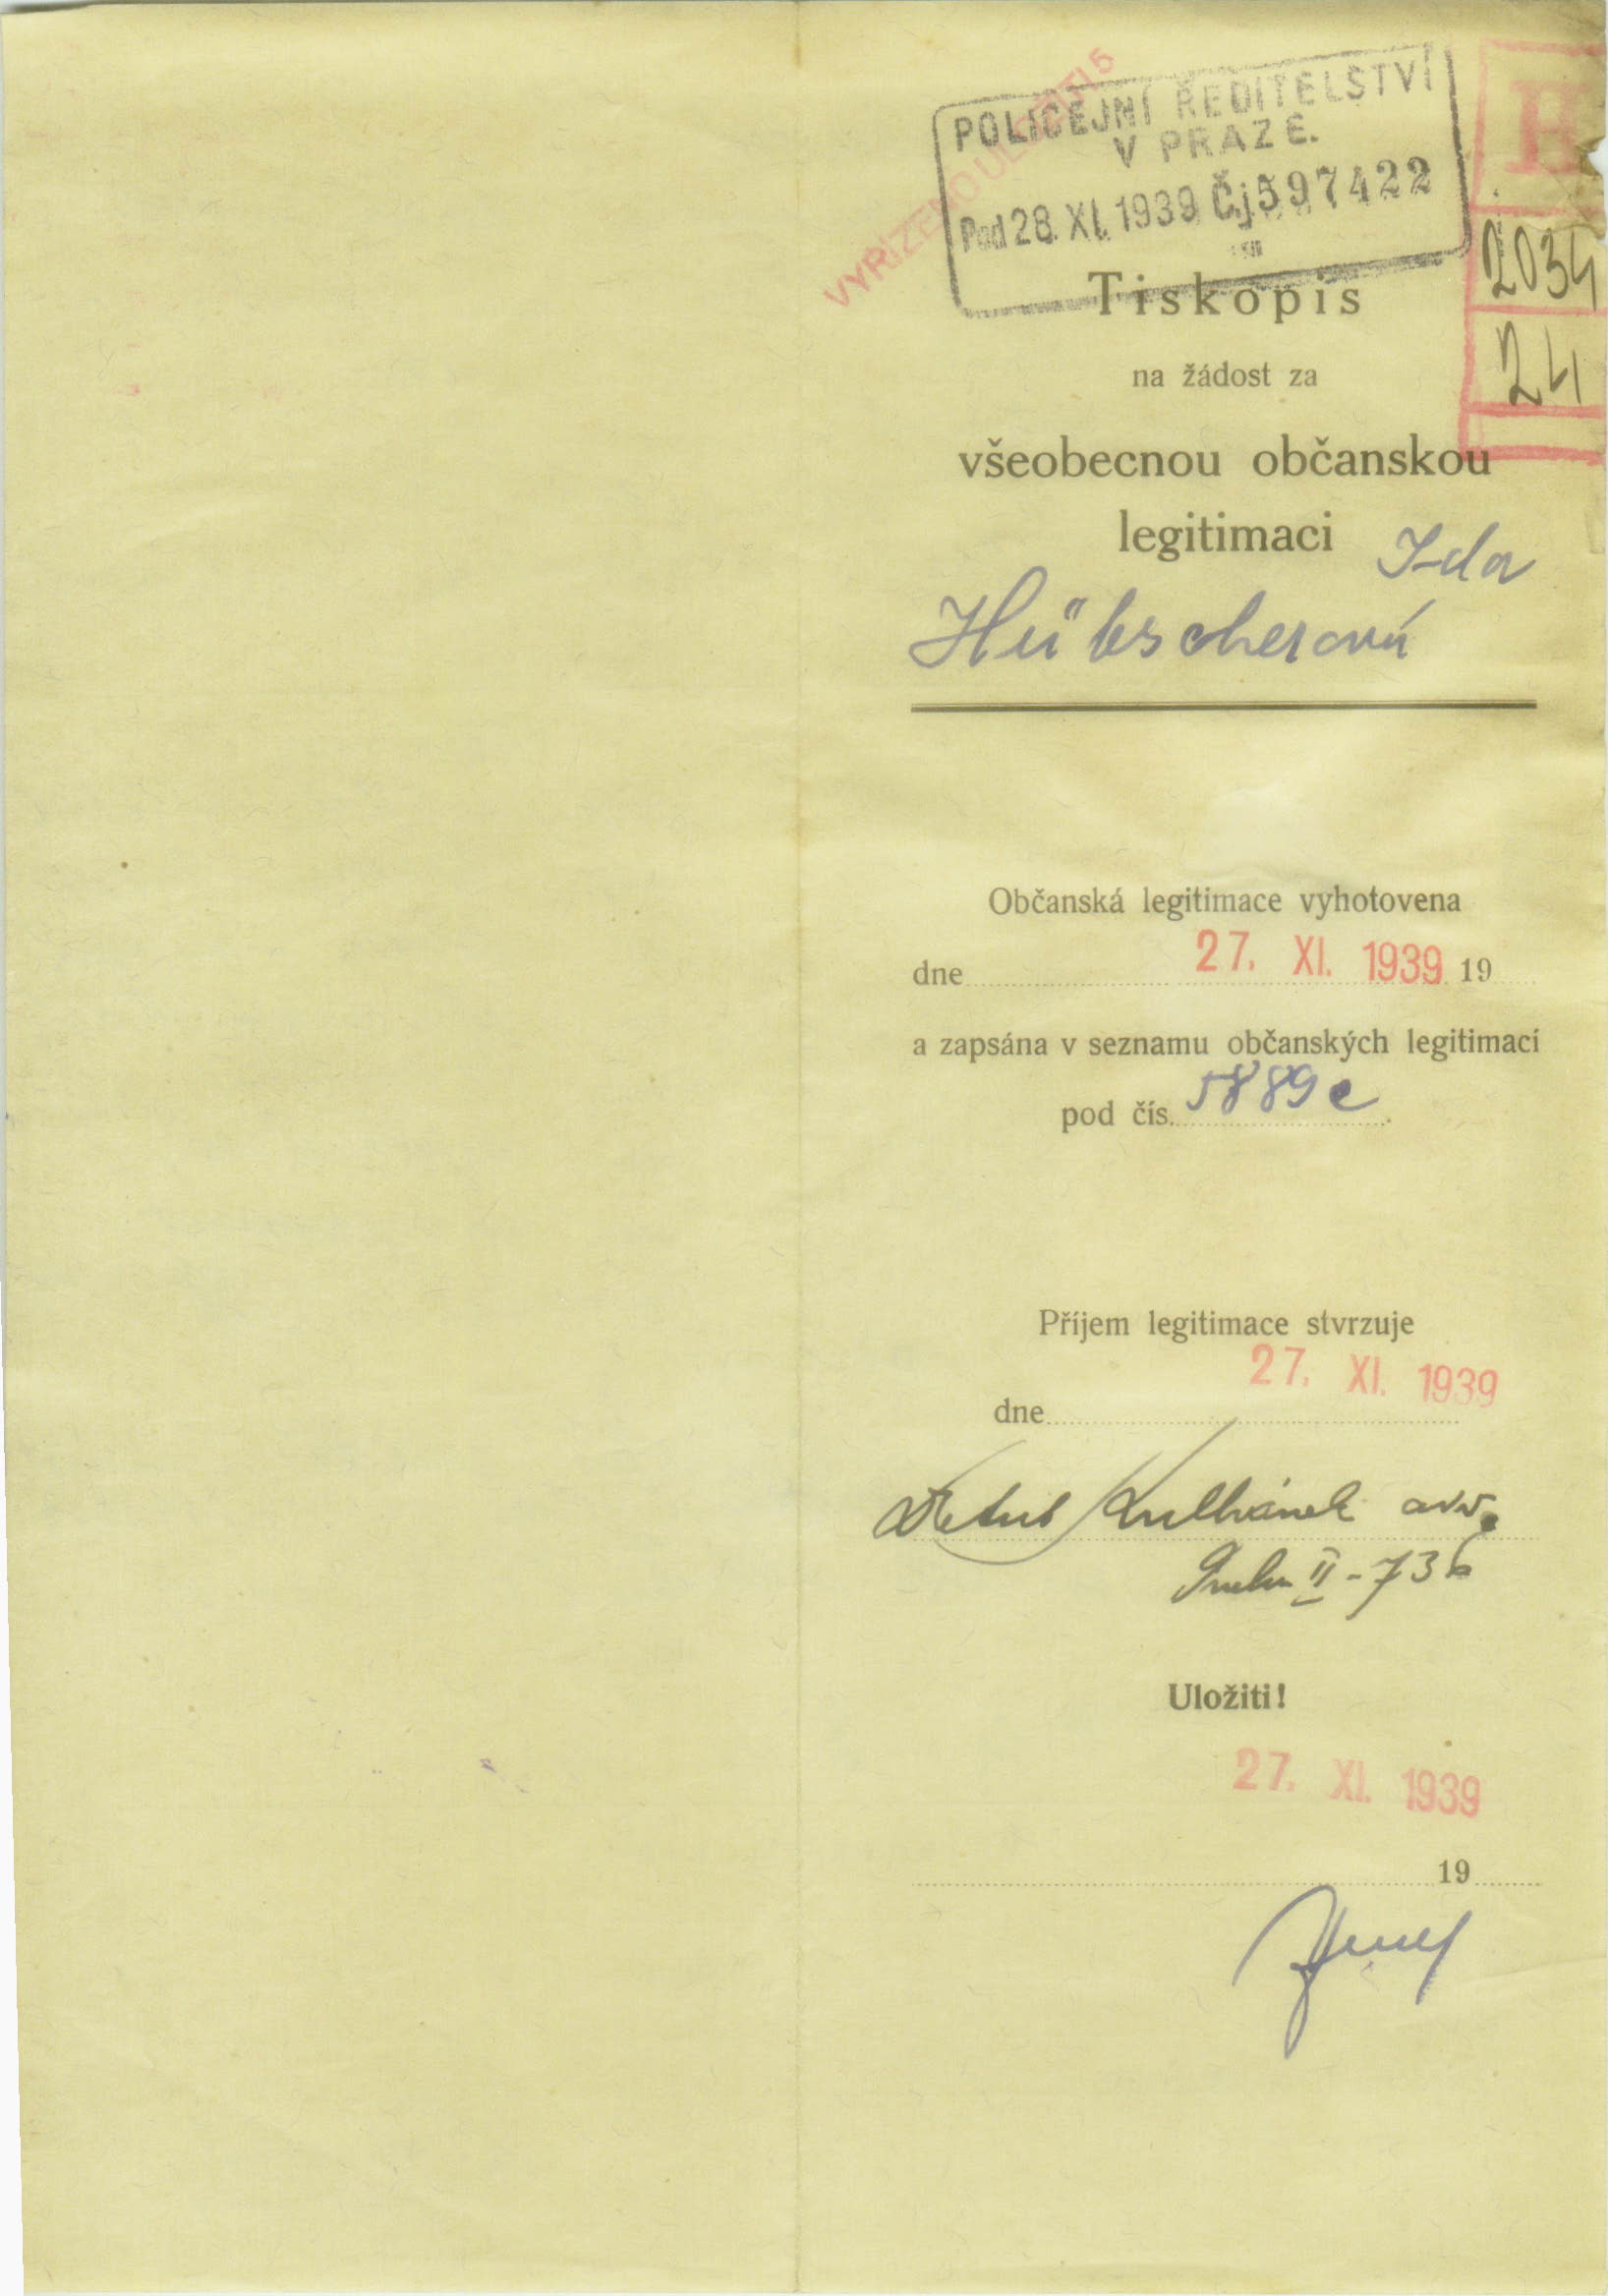 VYŘÍZENO ULOŽITI 5
POLICEJNÍ ŘEDITELSTVÍ
V PRAZE.
Pod 28. XI. 1939 Čj 597422
H
2034
24
Tiskopis
na žádost za
všeobecnou občanskou
legitimaci Ida
Hübscherová
Občanská legitimace vyhotovena
dne 27. XI. 1939 19
a zapsána v seznamu občanských legitimací
pod čís. 5889e
Příjem legitimace stvrzuje
dne 27. XI. 1939
Kulhánek
II - 736
Uložiti!
27. XI. 1939
19